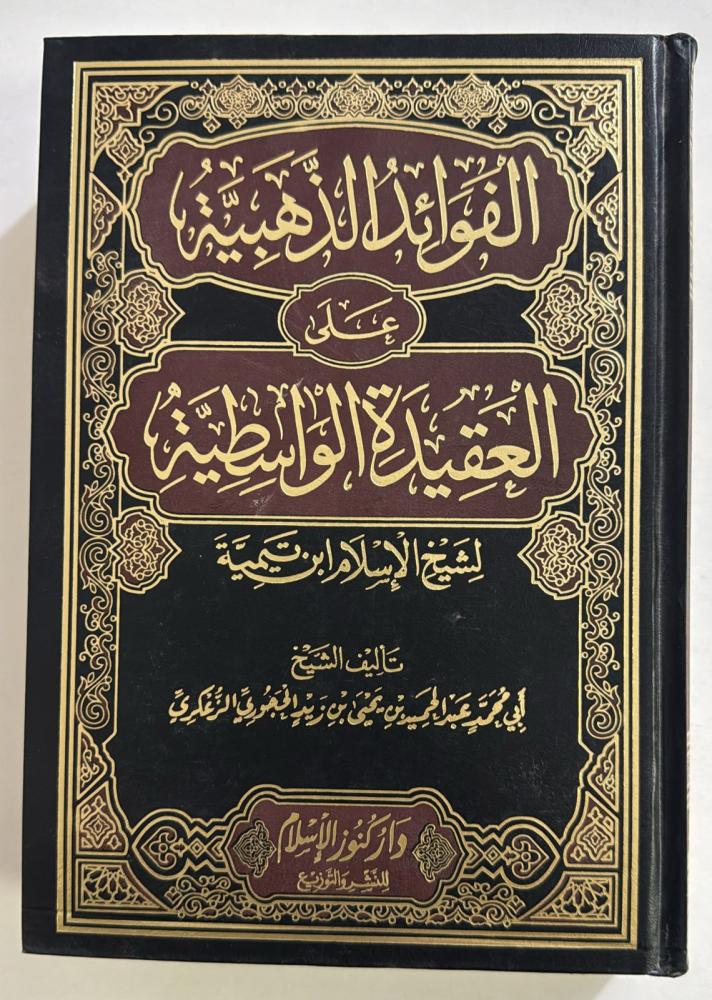 الفَوَائدُ الذَّهَبِيَّةُ
عَلَى
العَقِيدَةِ الوَاسِطِيَّةِ
لِشَيْخِ الإِسْلَامِ ابْنِ تَيْمِيَّةَ
تَأليفُ الشَّيْخِ
أَبِي مُحَمَّدٍ عَبْدِ الحَمِيدِ بْنِ يَحْيَى بْنِ زَيْدٍ الحَجُورِيِّ الزُّعْكُرِيِّ
دَارُ كُنُوزِ الإِسْلَامِ
لِلنَّشْرِ وَالتَّوْزِيعِ